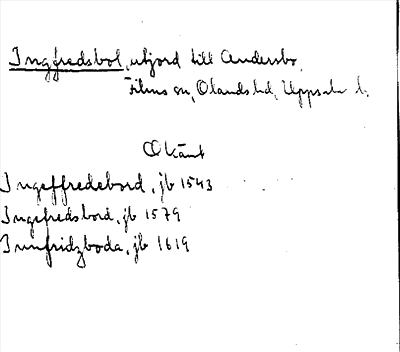 Ingfredsbol, utjord till Andersbo,
Films sn, Olands hd, Uppsala l.
Okänt
Ingeffredebord, jb 1543
Ingefredsbord, jb 1579
Innfridzboda, jb 1619